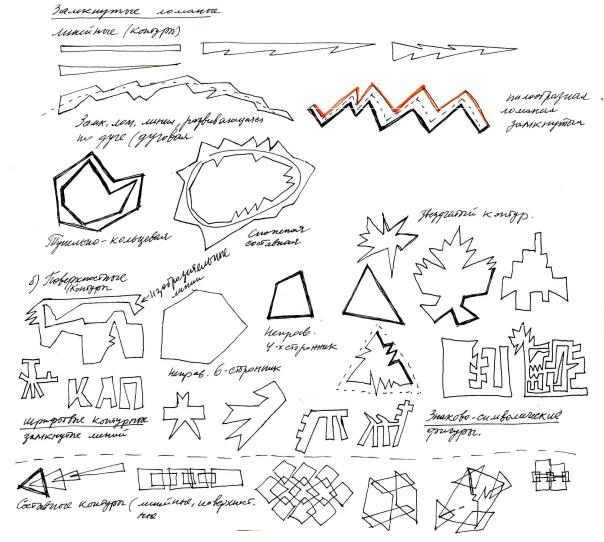 Замкнутые ломаные
линейные (контуры)
Замк. лом. линия, развивающаяся
по дуге (дуговая
пилообразная
ломаная
замкнутая
кольцевая
Сложная
составная
Звездчатый контур.
б) Поверхностные
(контуры
Изобразительные
линии
Неправ.
4-х сторонник
Неправ. 6-сторонник
КАП
шрифтовые контурные
замкнутые линии
Знаково-символические
фигуры.
Составные контуры (линейные, поверхност-
ные